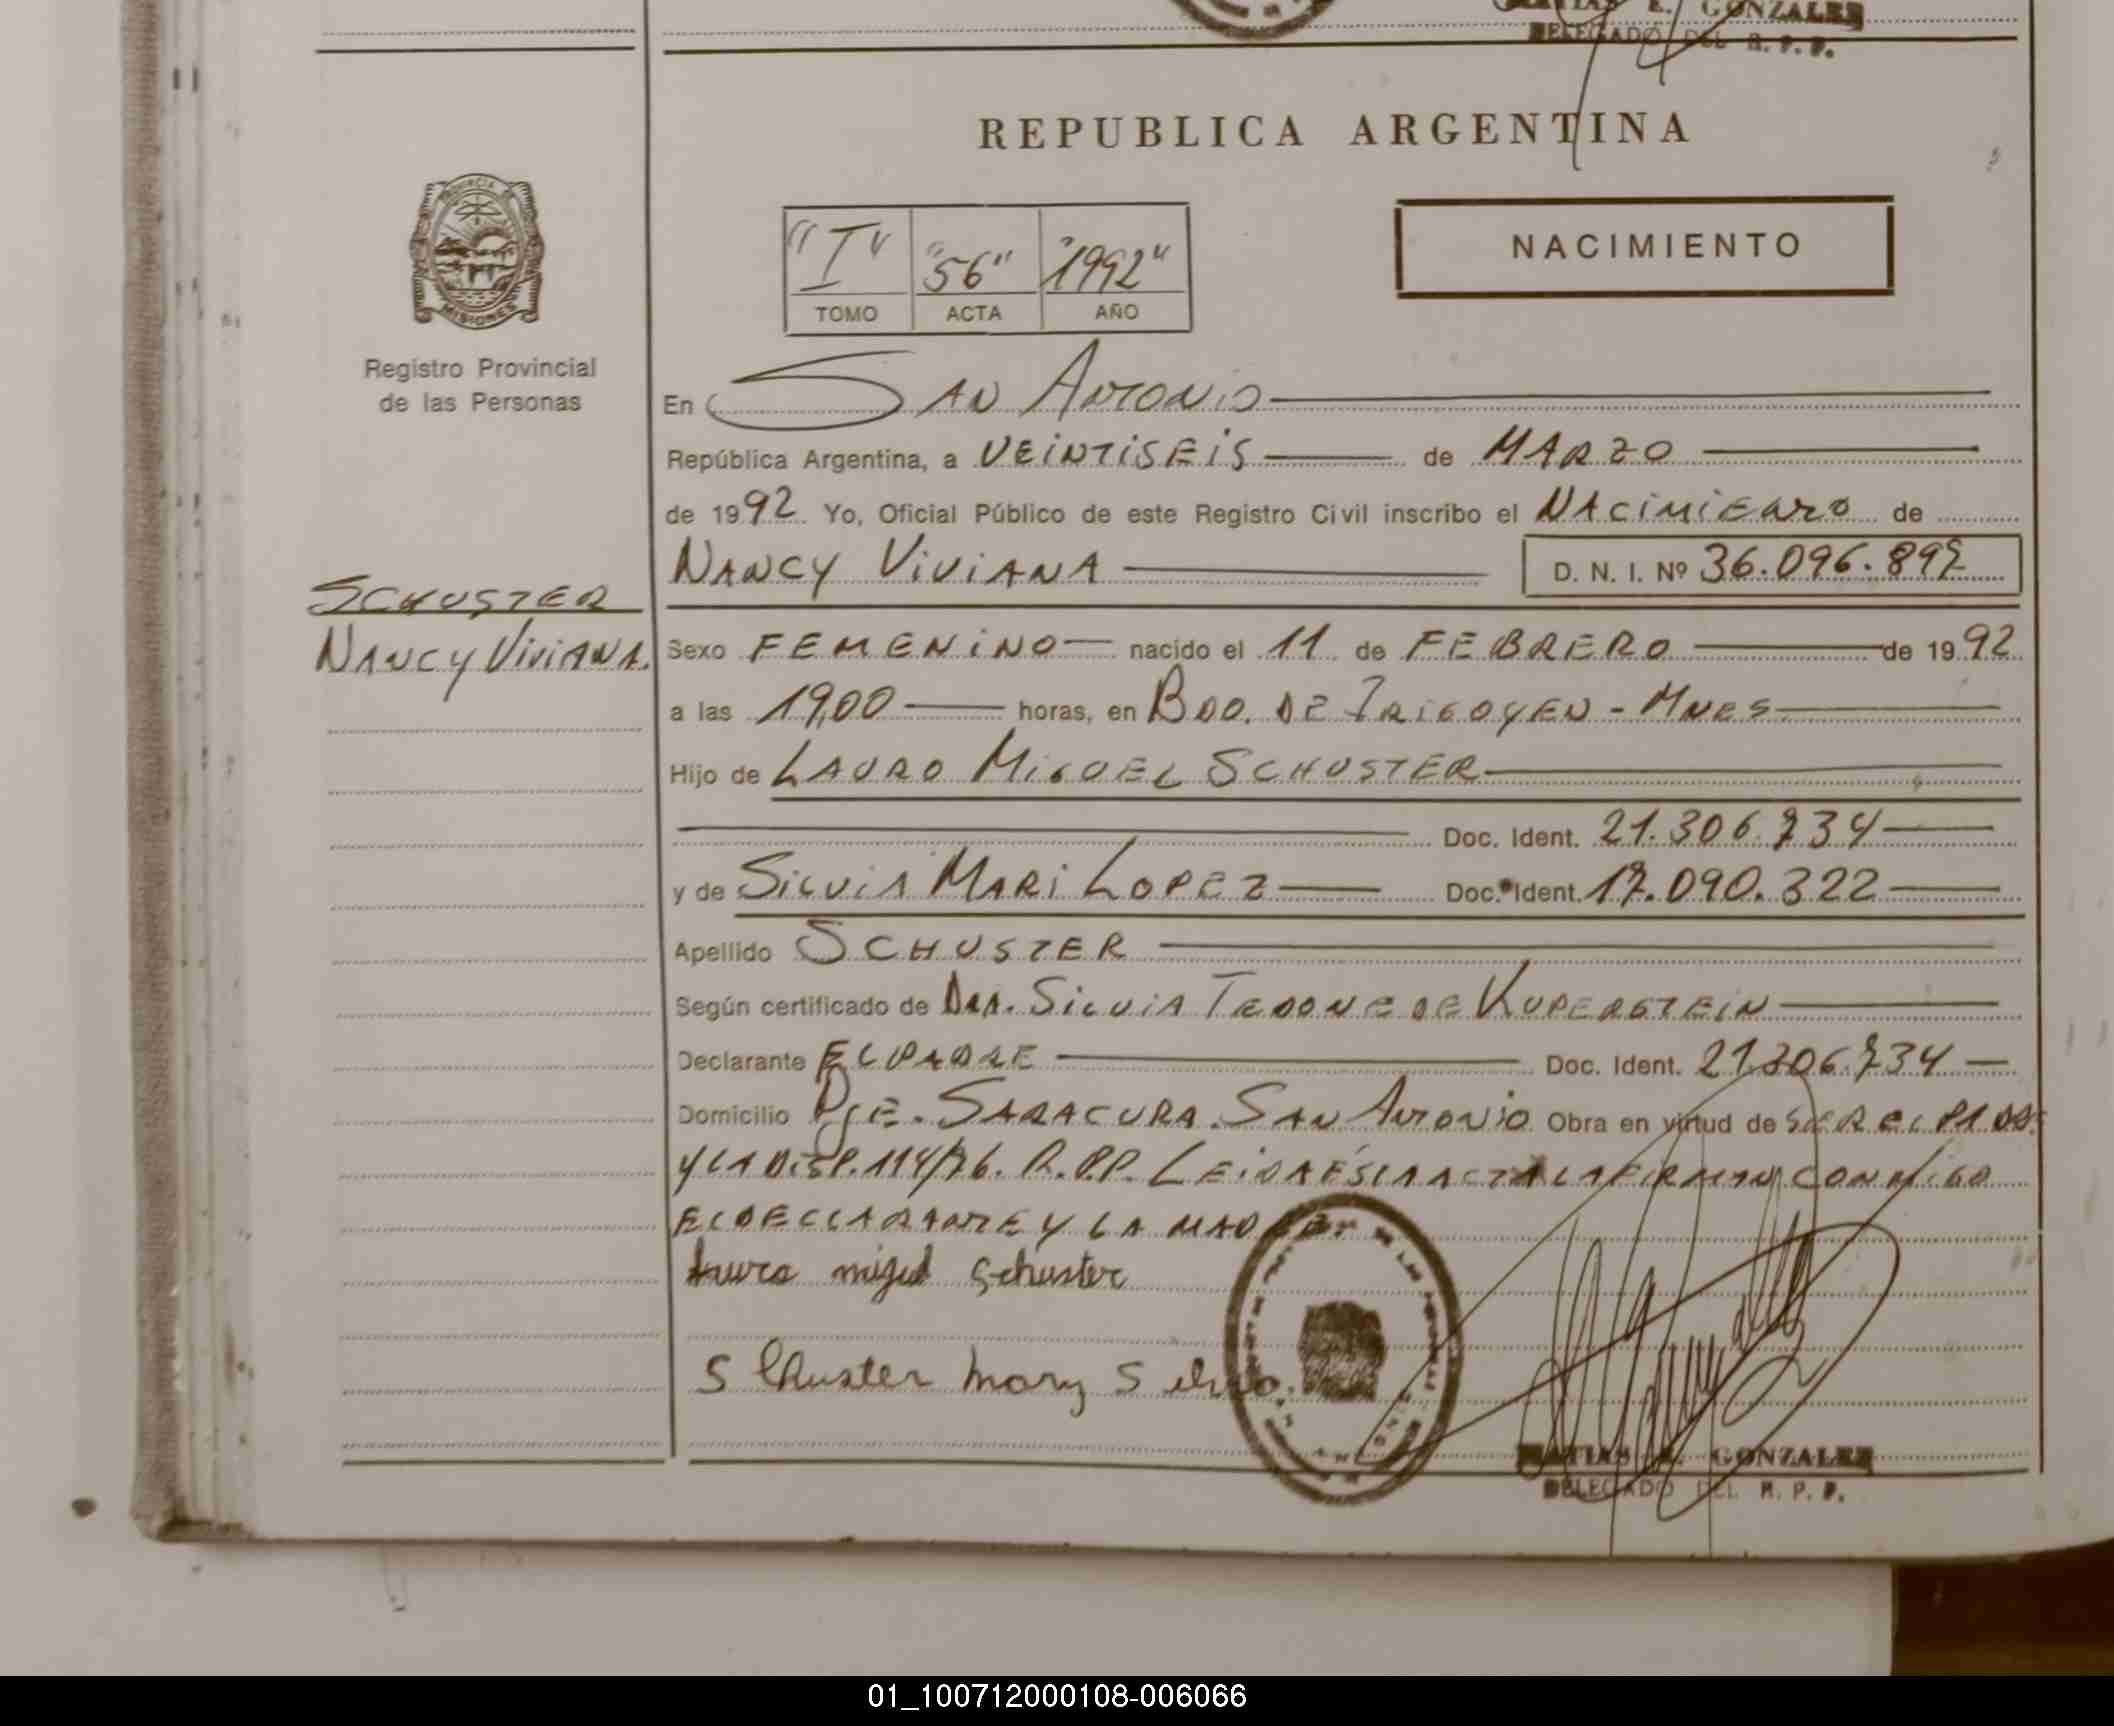 MATIAS E. GONZALEZ
DELEGADO DEL R. P. P.
REPUBLICA ARGENTINA
PROVINCIA DE
MISIONES
Registro Provincial
de las Personas
"I" "56" "1992"
TOMO ACTA AÑO
NACIMIENTO
En SAN ANTONIO
República Argentina, a VEINTISEIS de MARZO
de 1992 Yo, Oficial Público de este Registro Civil inscribo el NACIMIENTO de
NANCY VIVIANA D. N. I. Nº 36.096.899
SCHUSTER
NANCY VIVIANA.
Sexo FEMENINO nacido el 11 de FEBRERO de 1992
a las 19,00 horas, en BDO. DE IRIGOYEN - MNES
Hijo de LAURO MIGUEL SCHUSTER
Doc. Ident. 21.306.734
y de SILVIA MARI LOPEZ Doc. Ident. 17.090.322
Apellido SCHUSTER
Según certificado de DRA. SILVIA TEDONE DE KUPERSTEIN
Declarante EL PADRE Doc. Ident. 21.306.734
Domicilio PJE. SARACURA. SAN ANTONIO Obra en virtud de SER EL PADRE
Y LA DISP. 114/76. R.P.P. LEIDA ÉSTA ACTA LA FIRMAN CONMIGO
EL DECLARANTE Y LA MADRE.
Lauro miguel Schuster
SChuster Mary Silvia.
MATIAS E. GONZALEZ
DELEGADO DEL R. P. P.
01_100712000108-006066